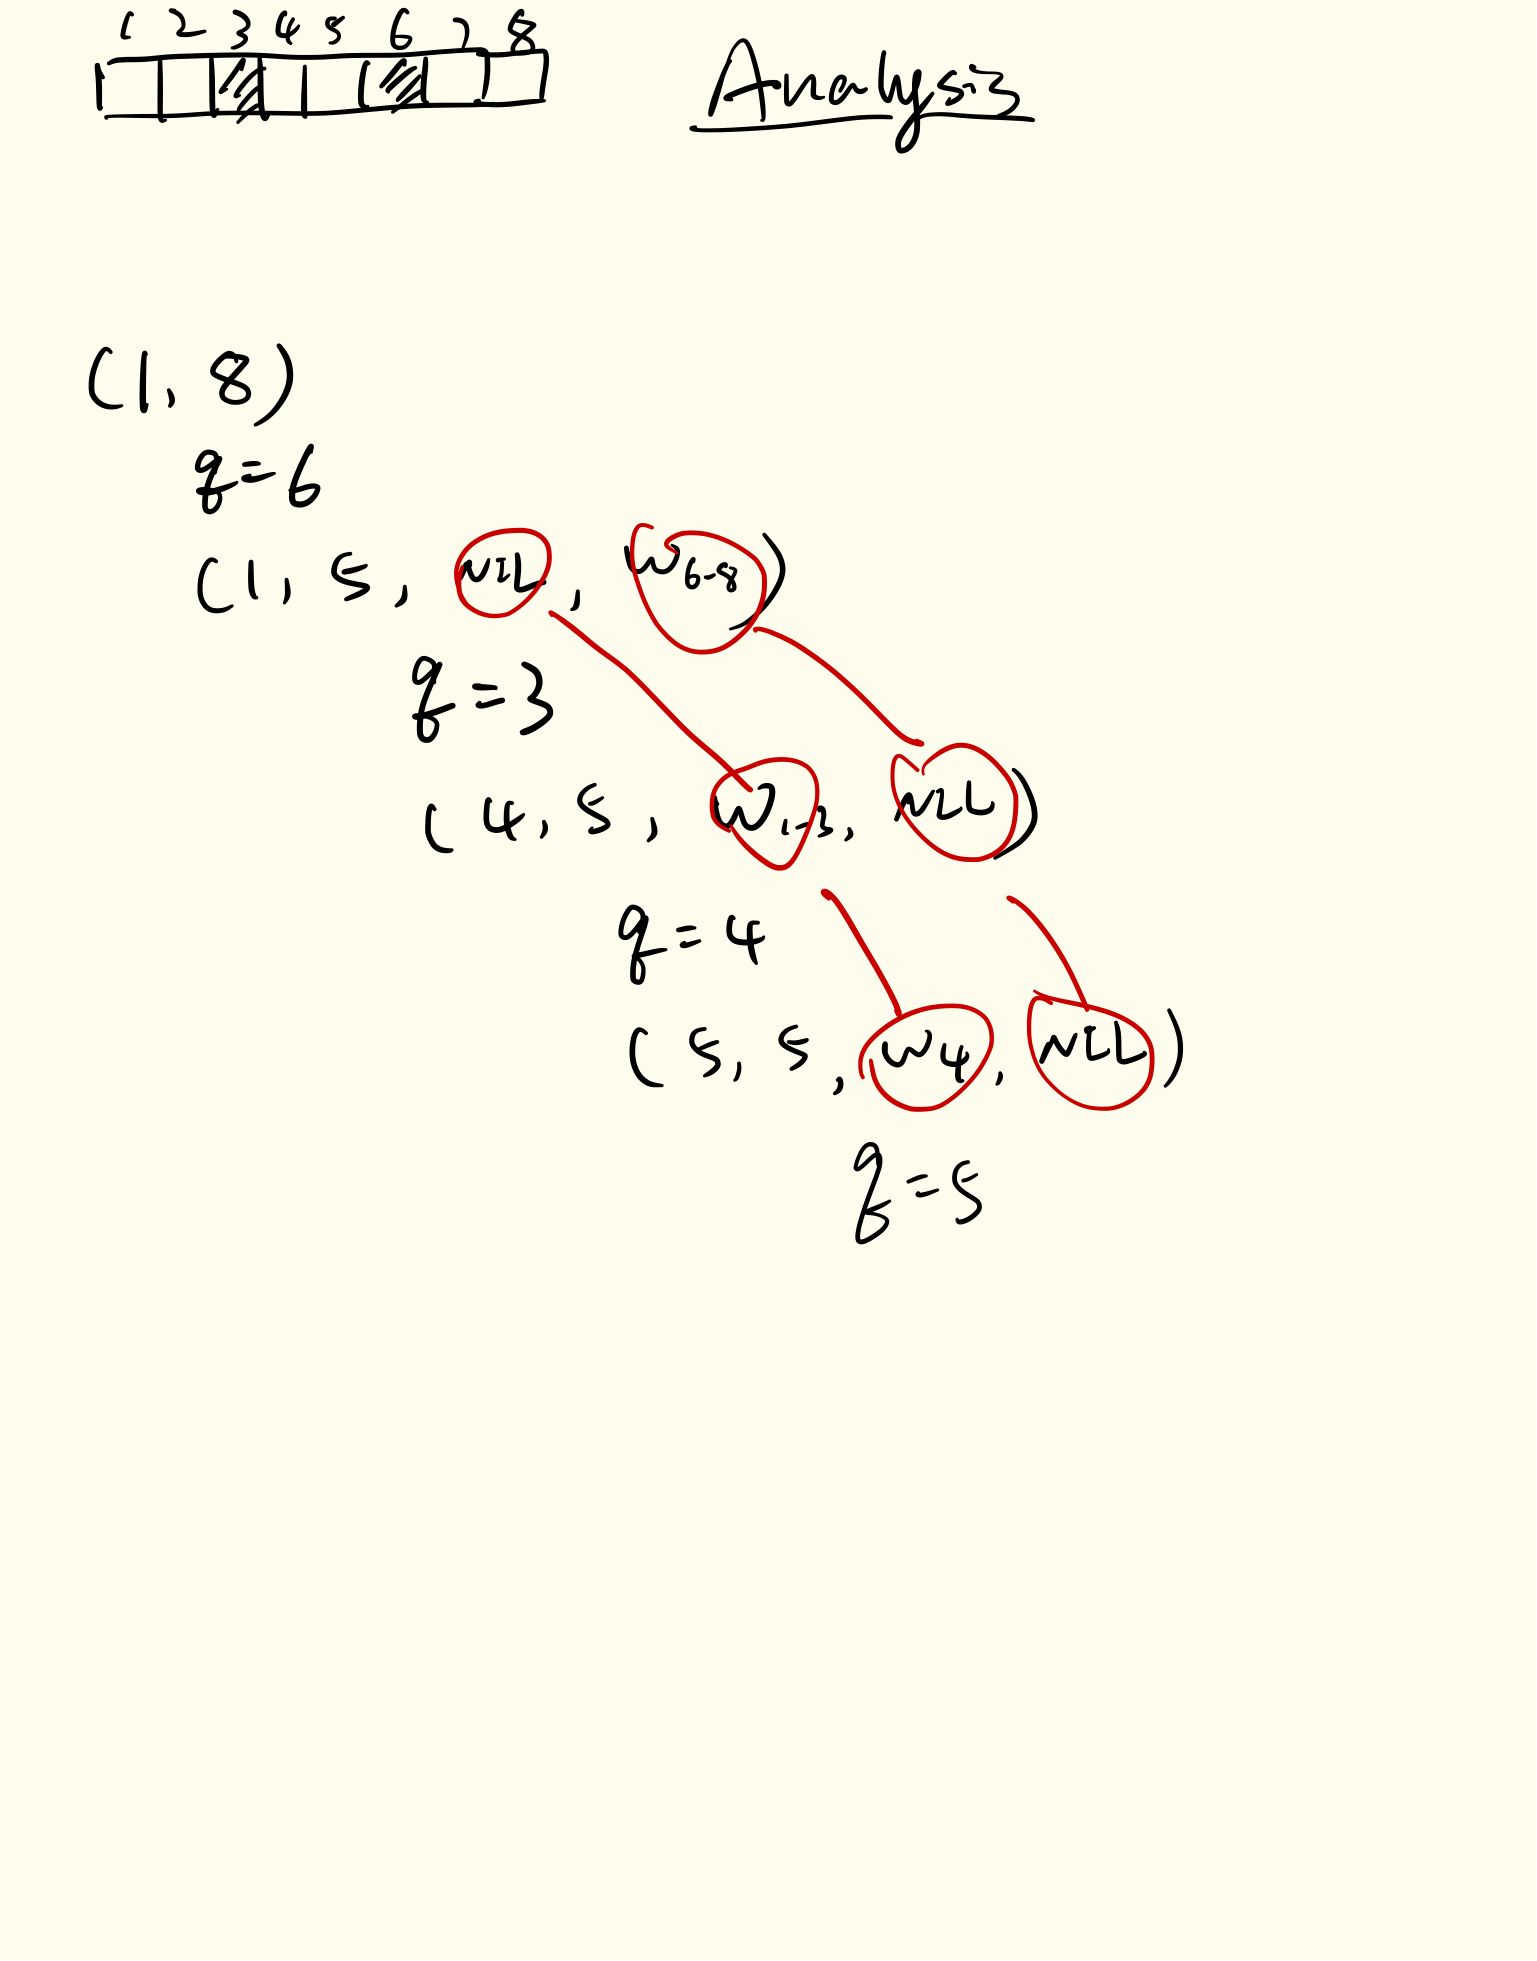 1 2 3 4 5 6 7 8
Analysis
(1, 8)
q=6
(1, 5, NIL, W6-8)
q=3
(4, 5, W1-3, NIL)
q=4
(5, 5, W4, NIL)
q=5